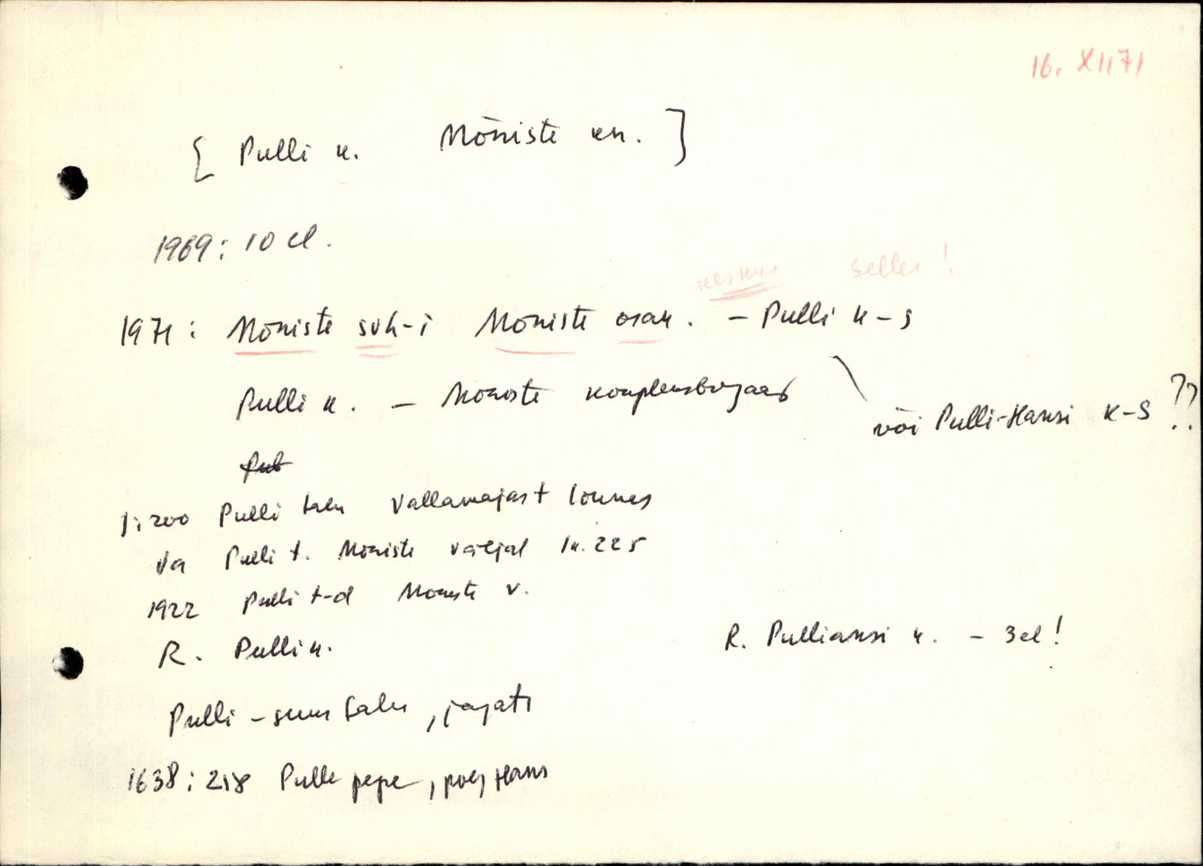 16. XII 71
[ Pulli k. Mõniste kn. ]
1969: 10 el.
selles!
1971: Mõniste svh-i Mõniste osak. – Pulli k-s
Pulli k. – Mõniste
või Pulli-Hansi k-s ??
J: 200 Pulli talu Vallamajast lõunas
Ja Pulli t. Mõniste väljal lk. 225
1922 Pulli t-d Mõniste v.
R. Pulli k.
R. Pulliansi k. – 3 el!
Pulli - suur talu, jagati
1638: 218 Pulle pepe, poeg Hans